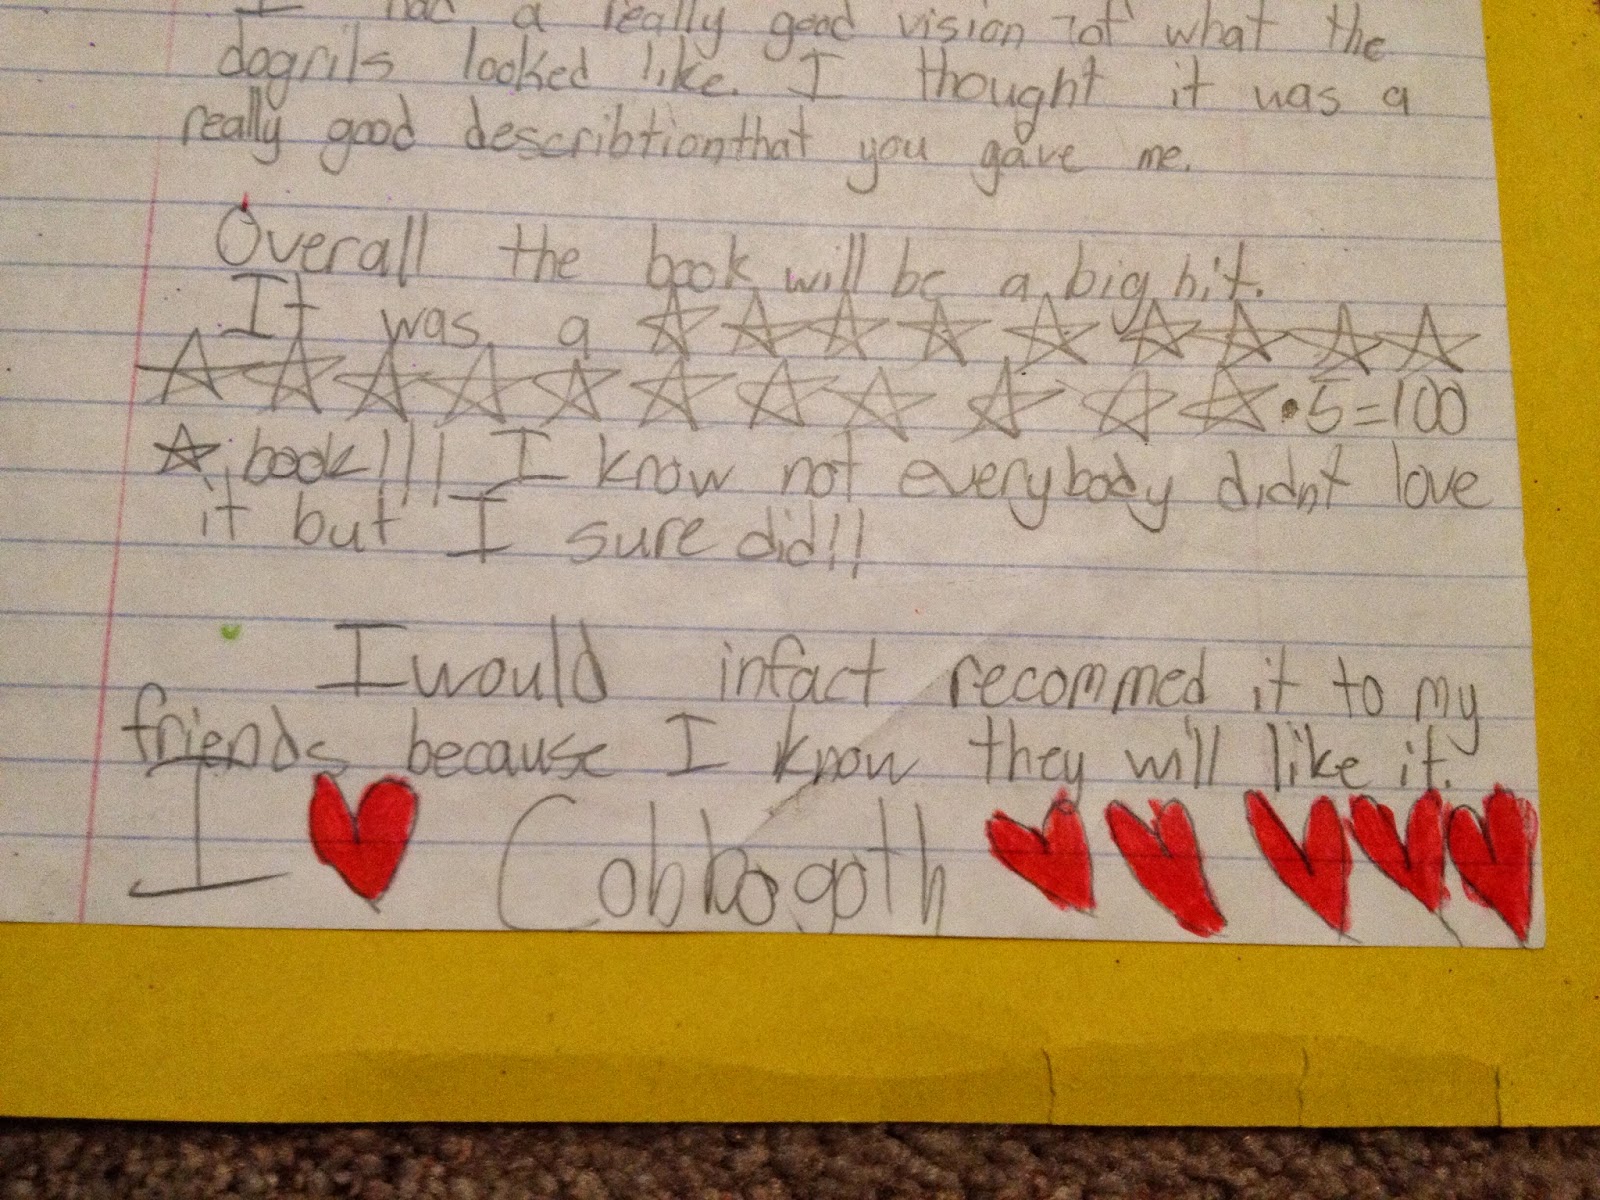 I had a really good vision of what the
dogrils looked like. I thought it was a
really good describtionthat you gave me.
Overall the book will be a big hit.
It was a ☆☆☆☆☆☆☆☆☆
☆☆☆☆☆☆☆☆☆☆☆•5=100
☆ book!!! I know not everybody didnt love
it but I sure did!!
I would infact recommed it to my
friends because I know they will like it.
I ♥ Cobbogoth ♥♥♥♥♥